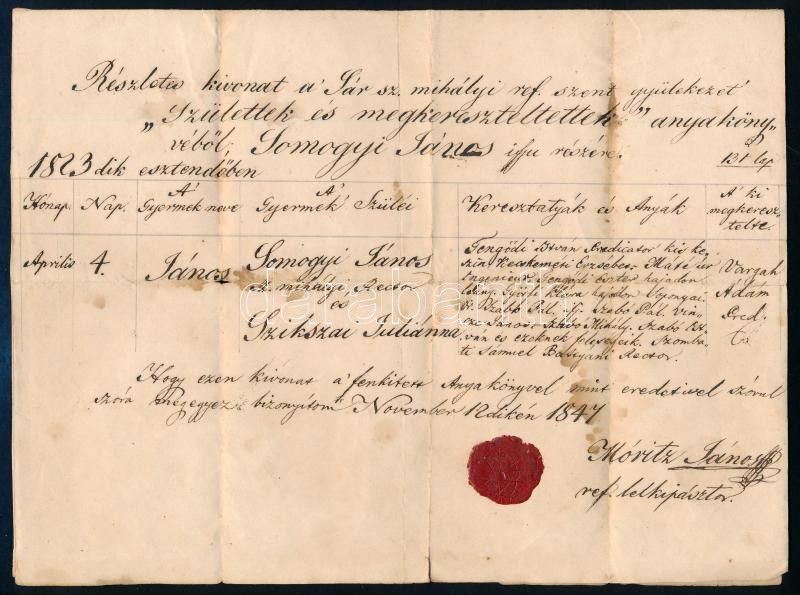 Részletes kivonat a' Sár sz. mihályi ref. szent gyülekezet
„Születtek és megkereszteltettek” anyaköny„
véből, Somogyi János ifju részére.
131 lap
1823dik esztendőben
Hónap. Nap. A' Gyermek neve A' Gyermek Szüléi Keresztatyák és Anyák A' ki megkeresz„telte.
Április 4. János Somogyi János
sz. mihályi Rector
és
Szikszai Juliánna
Gengődi István Predicator
Kecskeméti Erzsébet Máté
Ingenieur Gengődi Eszter hajadon
leány. Győrfi Klára hajadon
Szabó Pál, G. Szabó Pál.
János Szabó Mihály. Szabó
ván és ezeknek feleségeik. Szomba„
ti Sámuel Rector.
Vargah
Ádám
Pred.
Hogy ezen kivonat a' fenkitett Anyakönyvel mint eredetivel szórul
szóra megegyez bizonyitom November 12dikén 1847
Móritz János
ref. lelkipásztor.
darabanth